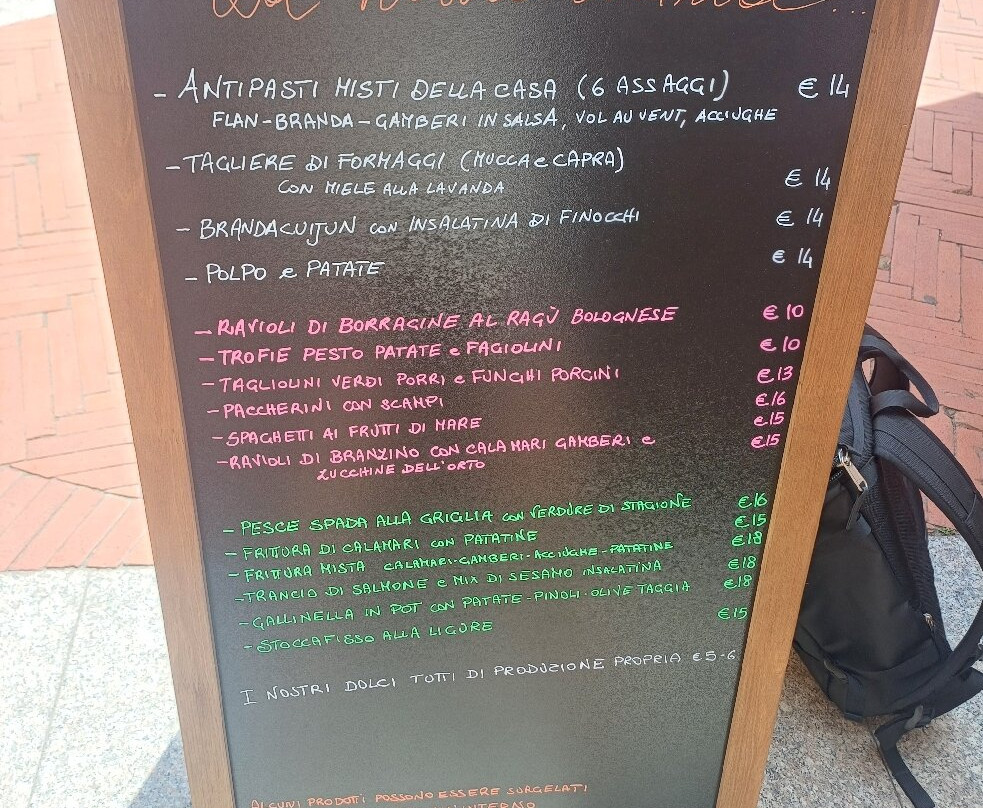 - ANTIPASTI MISTI DELLA CASA (6 ASSAGGI) € 14
FLAN-BRANDA-GAMBERI IN SALSA, VOL AU VENT, ACCIUGHE
- TAGLIERE DI FORMAGGI (MUCCA e CAPRA)
CON MIELE ALLA LAVANDA € 14
- BRANDACUIJUN con INSALATINA DI FINOCCHI € 14
- POLPO e PATATE € 14
- RAVIOLI DI BORRAGINE AL RAGÙ BOLOGNESE € 10
- TROFIE PESTO PATATE e FAGIOLINI € 10
- TAGLIOLINI VERDI PORRI e FUNGHI PORCINI € 13
- PACCHERINI CON SCAMPI € 16
- SPAGHETTI AI FRUTTI DI MARE € 15
- RAVIOLI DI BRANZINO CON CALAMARI GAMBERI e € 15
ZUCCHINE DELL'ORTO
- PESCE SPADA ALLA GRIGLIA con VERDURE DI STAGIONE € 16
- FRITTURA DI CALAMARI CON PATATINE € 15
- FRITTURA MISTA CALAMARI-GAMBERI-ACCIUGHE-PATATINE € 18
- TRANCIO DI SALMONE e MIX DI SESAMO INSALATINA € 18
- GALLINELLA IN POT CON PATATE-PINOLI-OLIVE TAGGIA € 18
- STOCCAFISSO ALLA LIGURE € 15
I NOSTRI DOLCI TUTTI DI PRODUZIONE PROPRIA € 5-6
ALCUNI PRODOTTI POSSONO ESSERE SURGELATI